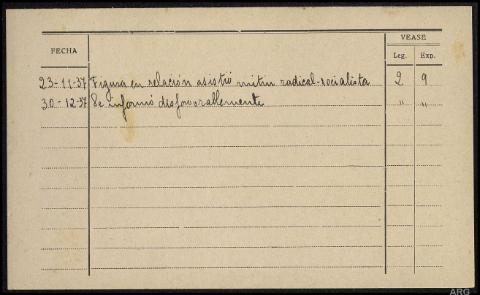 FECHA
VEASE
Leg. Exp.
23-11-37 Figura en relación asistió mitin radical-socialista 2 9
30-12-37 Se informó desfavorablemente " "
ARG